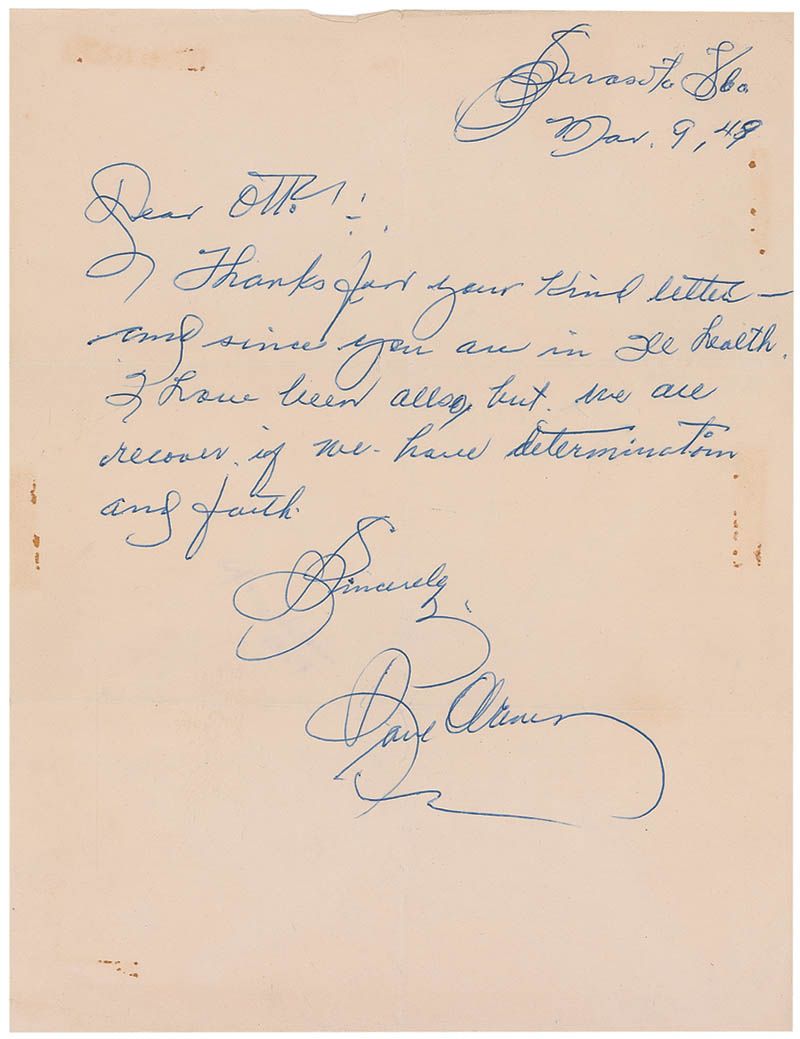 Sarasota Fla
Mar. 9, 49
Dear Otto!
Thanks for your kind letter —
and since you are in Ill health.
I have been also, but. we are
recover. if we have determination
and faith.
Sincerely,
Dave